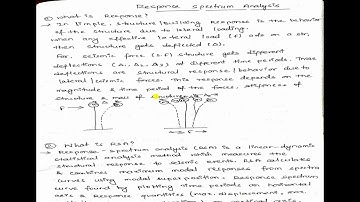 Response Spectrum Analysis
① What is Response?
→ In simple, structure/Building Response is the behavior
of the structure due to lateral loading.
when any effective lateral load (F) acts on a str,
then structure gets deflected (Δ).
For, seismic force (F) structure gets different
deflections (Δ, Δ2, Δ3) at different time periods. These
deflections are structural response/behavior due to
lateral/seismic forces. This response depends on the
magnitude & time period of the forces, stiffness of
structure & mass of structure.
F
← F →
② What is RSA?
→ Response-spectrum analysis (RSA) is a linear-dynamic
statistical analysis method which measures the
structural response to seismic events. RSA calculates
& combines maximum modal responses from spectra
curves using modal superposition. Response spectrum
curve found by plotting time periods on horizontal
axis & Response quantities (max. displacement, max.